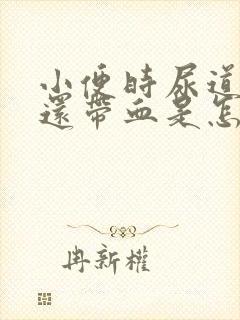 小便時尿道
還帶血是怎
冉新權